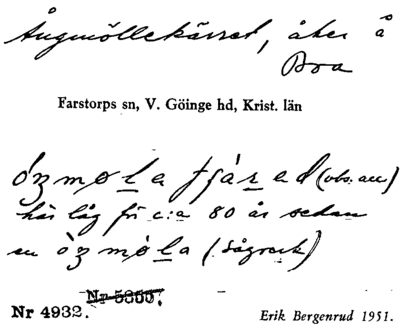 Ångmöllekärret, åker å
Boa
Farstorps sn, V. Göinge hd, Krist. län
ózmøla tjárad (obs. acc.)
här låg för c:a 80 år sedan
en òzmøla (Sågverk)
Nr 5300.
Nr 4932.
Erik Bergenrud 1951.